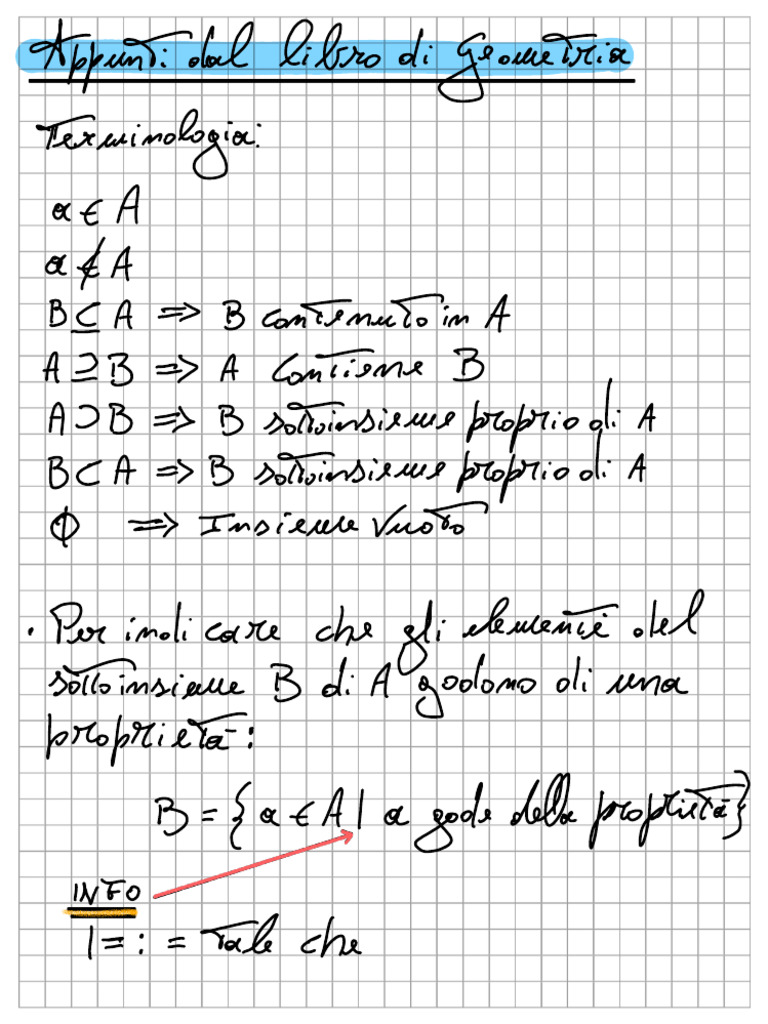 Appunti dal libro di Geometria
Terminologia:
a ∈ A
a ∉ A
B ⊆ A => B contenuto in A
A ⊇ B => A contiene B
A ⊃ B => B sottoinsieme proprio di A
B ⊂ A => B sottoinsieme proprio di A
Φ => Insieme Vuoto
· Per indicare che gli elementi del
sottoinsieme B di A godono di una
proprietà:
B = { a ∈ A | a gode della proprietà}
INFO
| = : = Tale che